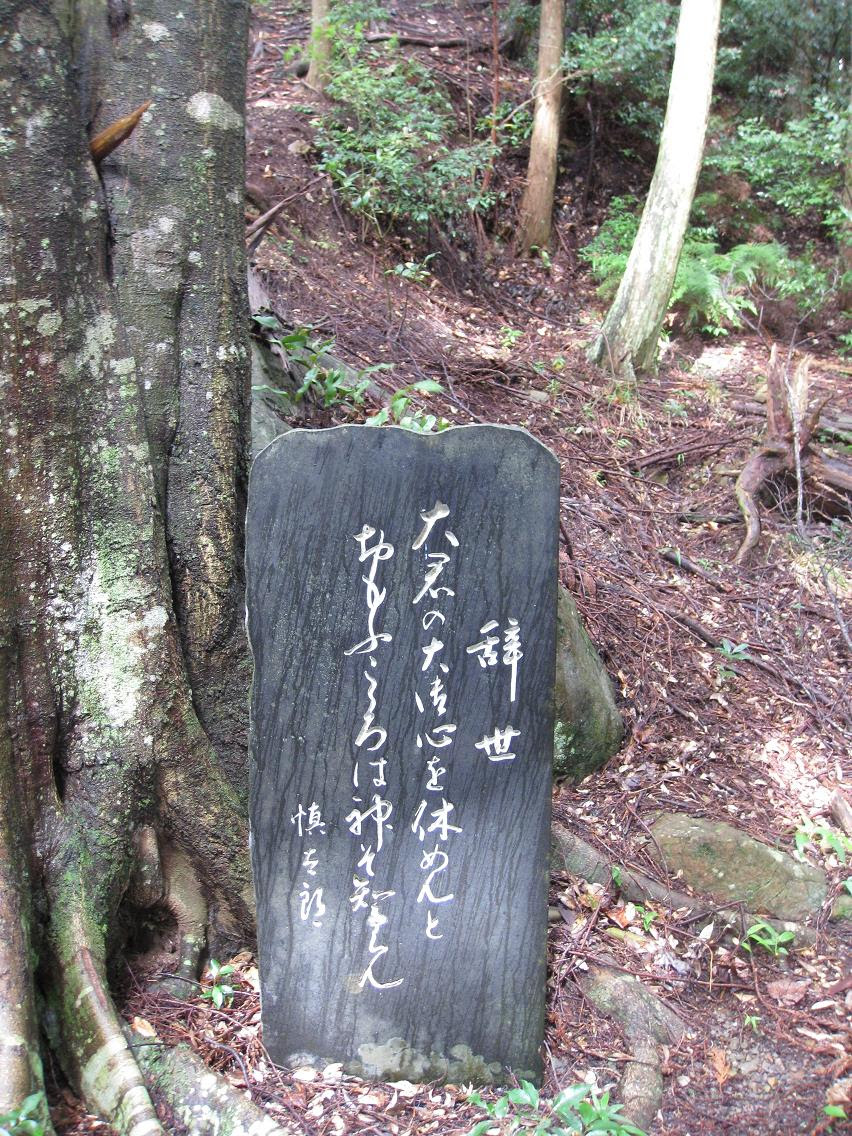 辞世
大君の大御心を休めんと
おもふこころは神そ知るらん
慎太郎